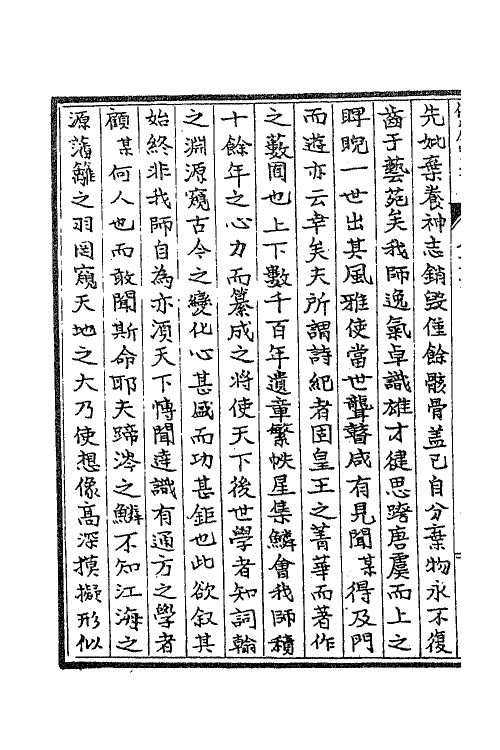 先妣棄養神志銷毀僅餘骸骨蓋已自分棄物永不復
齒于藝苑矣我師逸氣卓識雄才健思躋唐虞而上之
睥睨一世出其風雅使當世聾瞽咸有見聞某得及門
而遊亦云幸矣夫所謂詩紀者固皇王之菁華而著作
之藪囿也上下數千百年遺章繁帙星集鱗會我師積
十餘年之心力而纂成之將使天下後世學者知詞翰
之淵源窺古今之變化心甚盛而功甚鉅也此欲叙其
始終非我師自為亦須天下愽聞達識有通方之學者
顧某何人也而敢聞斯命耶夫蹄涔之鱗不知江海之
源藩籬之羽罔窺天地之大乃使想像高深摸擬形似